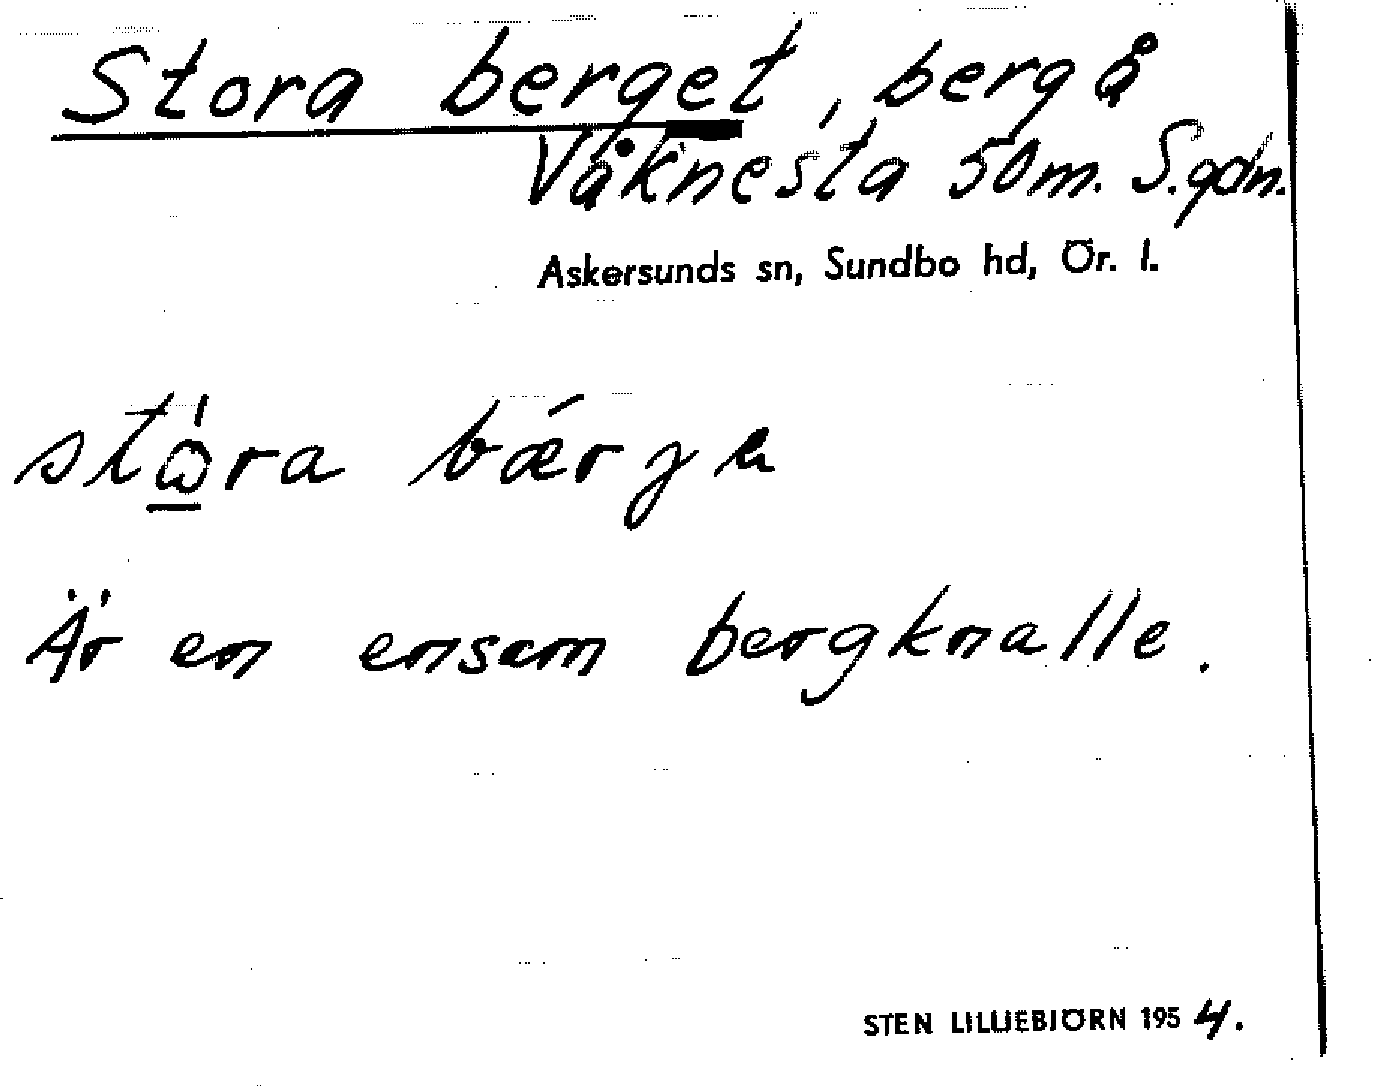 Stora berget, berg å
Våknesta 50 m. S. gdn.
Askersunds sn, Sundbo hd, Ör. l.
stώ̲ra bǽrγα
Är en ensam bergknalle.
STEN LILLIEBJÖRN 1954.